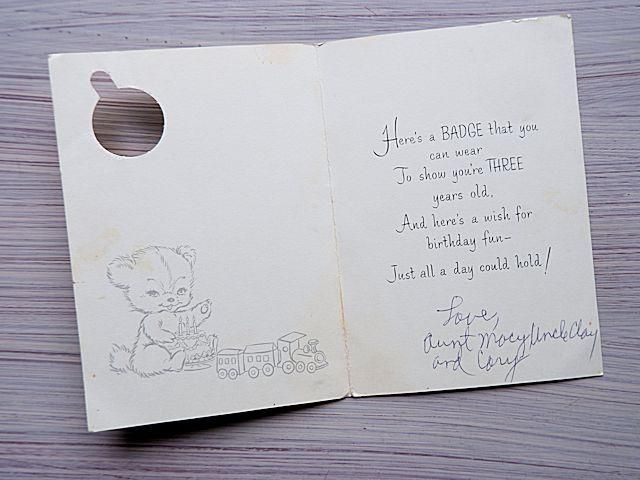 Here's a BADGE that you
can wear
To show you're THREE
years old,
And here's a wish for
birthday fun—
Just all a day could hold!
Love,
Aunt Macy, Uncle Clay
and Cary